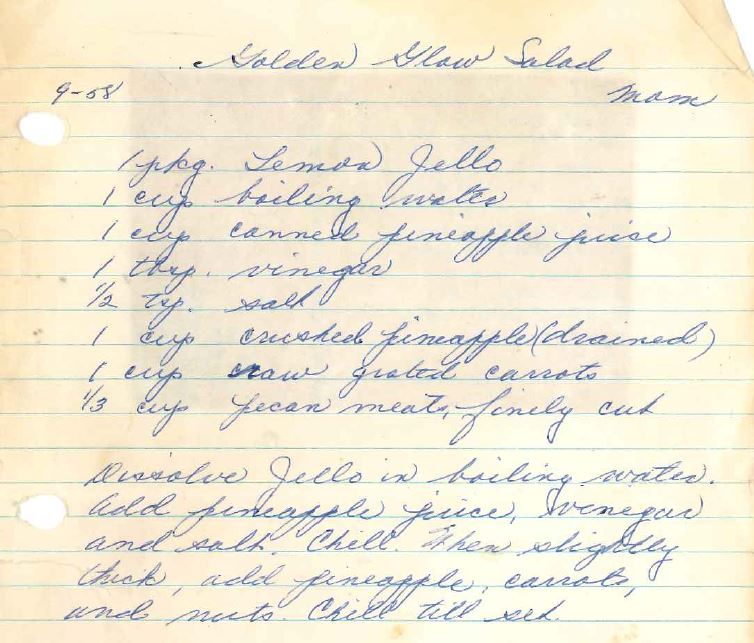 Golden Glow Salad
9-58 Mom
1 pkg. Lemon Jello
1 cup boiling water
1 cup canned pineapple juice
1 tbsp. vinegar
1/2 tsp. salt
1 cup crushed pineapple (drained)
1 cup raw grated carrots
1/3 cup pecan meats, finely cut
Dissolve Jello in boiling water.
Add pineapple juice, vinegar
and salt. Chill. When slightly
thick, add pineapple, carrots,
and nuts. Chill till set.